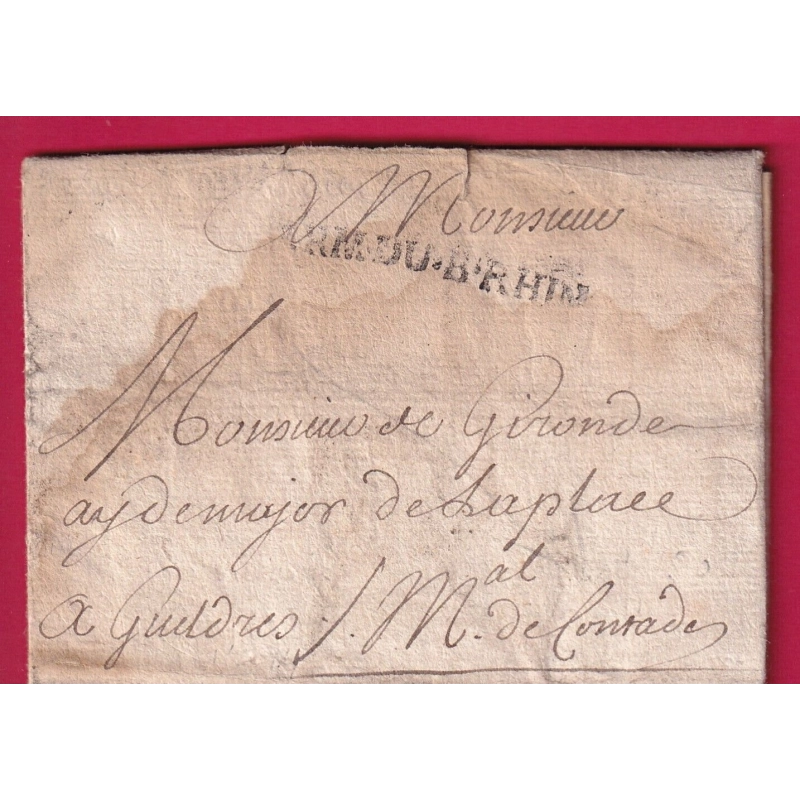 A Monsieur
ARM·DU·B·RHIN
Monsieur de Gironde
aydemajor de Laplace
a Gueldres /. M.al de Contades